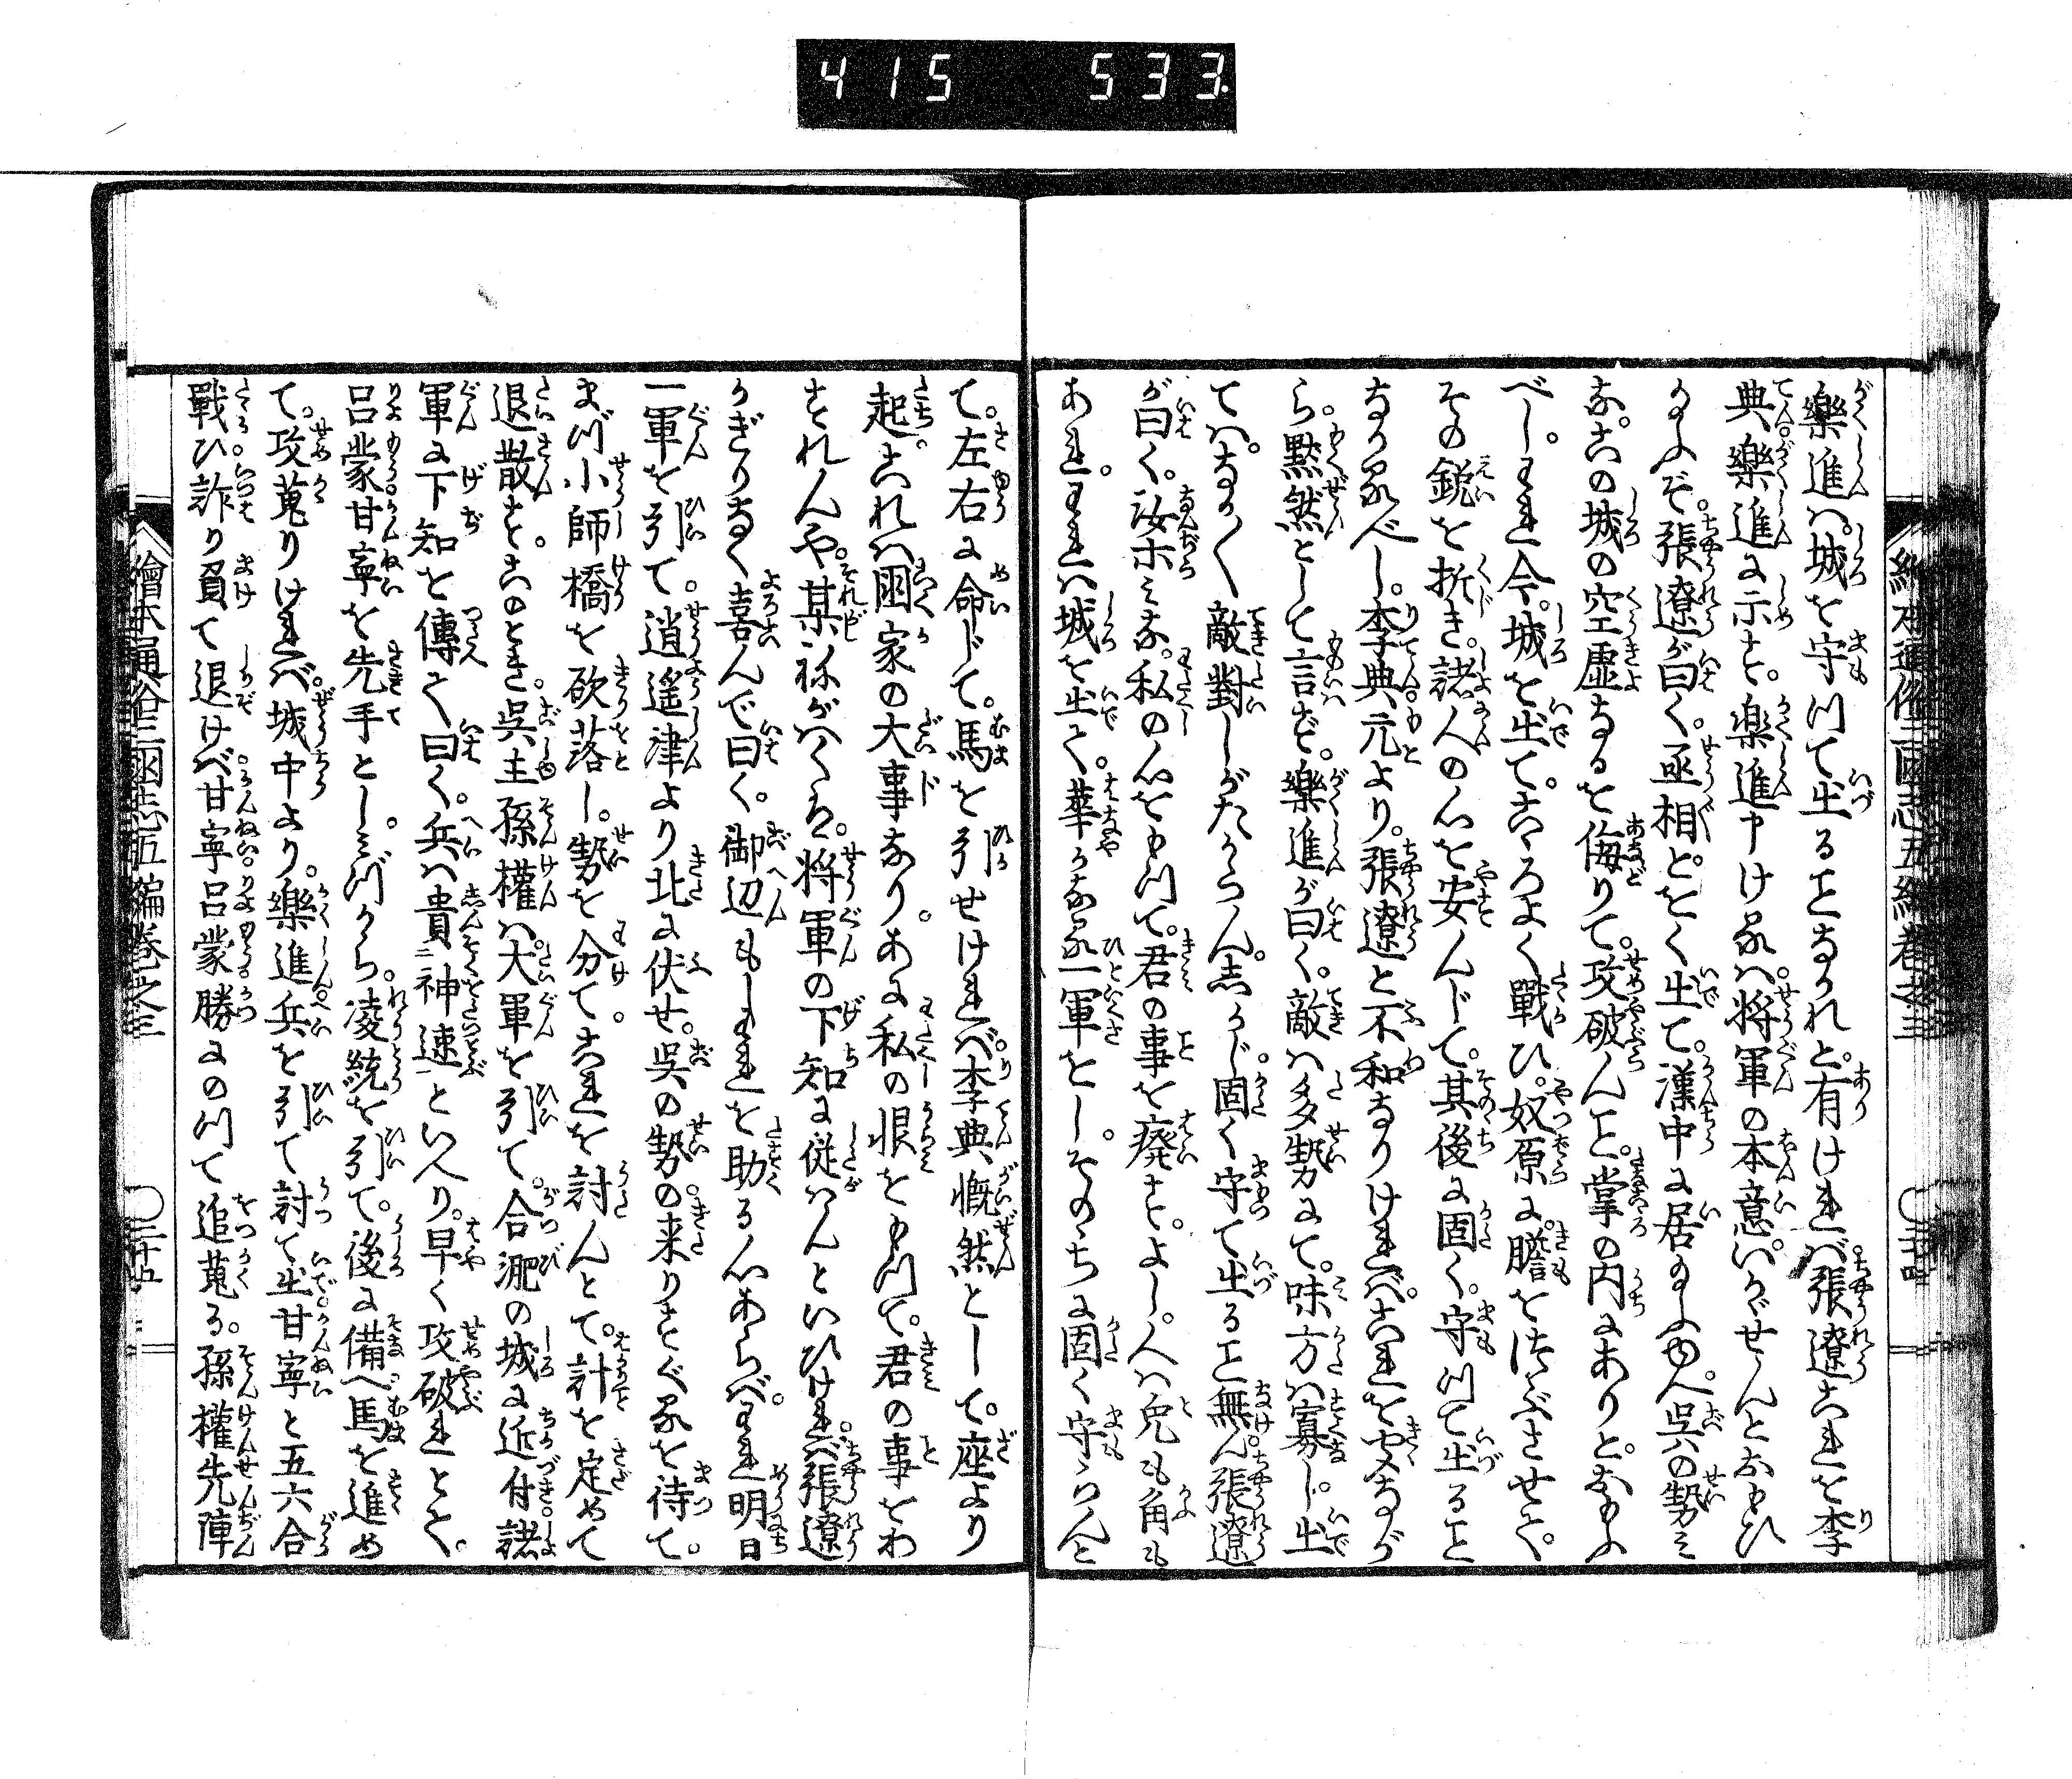 415 533
樂進ハ城を守つて出るヿなかれと有けれバ張遼これを李
典樂進に示す。樂進申けるハ将軍の本意いかゞせんとおもひ
給ふぞ。張遼が曰く。丞相とをく出て。漢中に居給ふゆへ。呉の勢ミ
な。この城の空虚なるを侮りて。攻破んヿ。掌の内にありと。おもふ
べし。われ今。城を出て。こゝろよく戰ひ。奴原に。膽をつぶさせて。
その鋭を折き。諸人の心を安んじて。其後に固く。守つて出るヿ
なかるべし。李典元より。張遼と不和なりけれバ。これを聞ながら
ら。黙然として言ず。樂進が曰く。敵ハ多勢にて。味方ハ寡し。出
てハ。なか〳〵敵對しがたからん。志かじ。固く守て出るヿ無ん張遼
が曰く。汝ホミな。私の心をもつて。君の事を廢す。よし。人ハ兎も角も
あれ。われハ城を出て。華かなる一軍をし。そのゝちに固く守らんと
て。左右に命じて。馬を引せけれバ。李典慨然として。座より
起。これハ國家の大事なり。あに私の恨をもつて。君の事をわ
すれんや。某ねがハくハ。将軍の下知に従ハんといひけれバ。張遼
かぎりなく喜んで曰く。御辺もしわれを助る心あらバ。われ明日
一軍を引て。逍遙津より北に伏せ。呉の勢の来りすぐるを待て。
まづ小師橋を砍落し。勢を分て。これを討んとて。計を定めて
退散す。このとき。呉主孫權ハ。大軍を引て。合淝の城に近付諸
軍に下知を傳て曰く。兵ハ貴神速といへり。早く攻破れとて。
呂蒙甘寧を先手とし。ミづから。凌統を引て。後に備へ馬を進め
て。攻蒐りけれバ。城中より。樂進兵を引て討て出甘寧と五六合
戰ひ詐り負て退けバ甘寧呂蒙勝にのつて追蒐る。孫權先陣
繪本通俗三國志五編巻之三
〇二十五